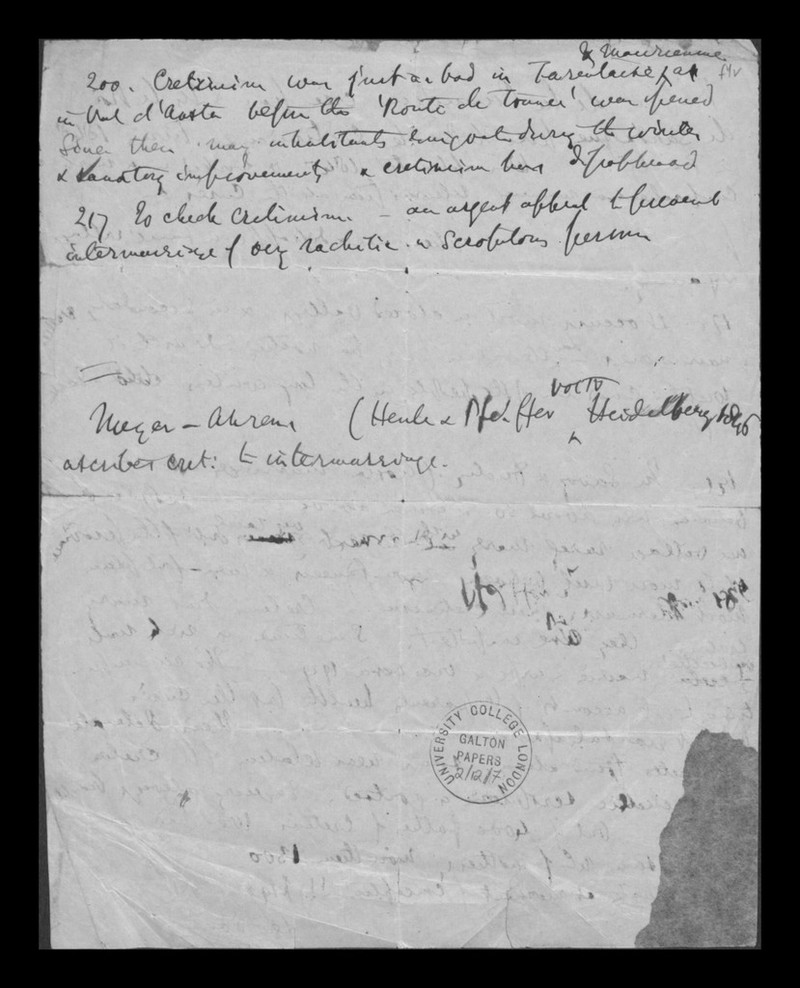 & Maurienne
f4v
200. Cretinism was just as bad in Tarentaise as
in Val d'Aosta before the 'Route de' was opened
Since then many inhabitants emigrate during the winter
& sanatory improvements & cretinism has
217 To check cretinism – an urgent appeal to prevent
intermarriage of very rachitic or scrofulous persons
Meyer – Ahrens (Henle & Pfeiffer Vol IV Heidelberg
ascribes cret: to intermarriage.
UNIVERSITY COLLEGE LONDON
GALTON
PAPERS
2/12/7